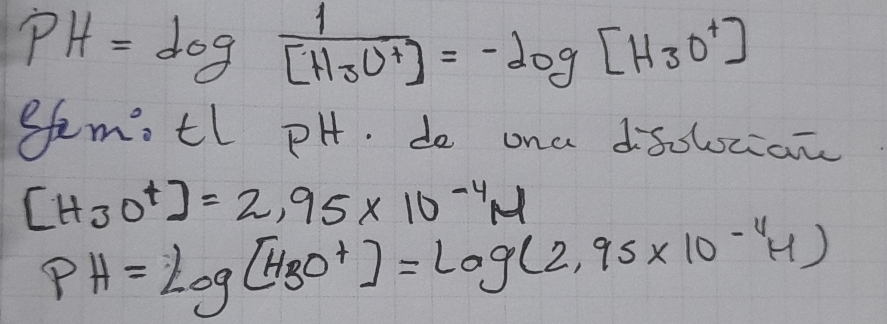 PH = log 1/[H3O+] = -log [H3O+]
Ejem: El PH. de una disolución
[H3O+] = 2,95 x 10-4 M
PH = Log [H3O+] = Log(2,95 x 10-4 M)